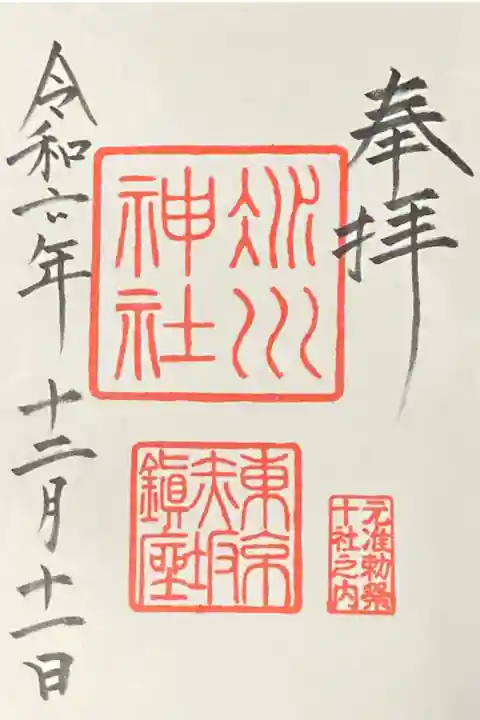 奉拝
冰川
神社
東京
赤坂
鎭座
元准勅祭
十社之内
令和六年 十二月十一日